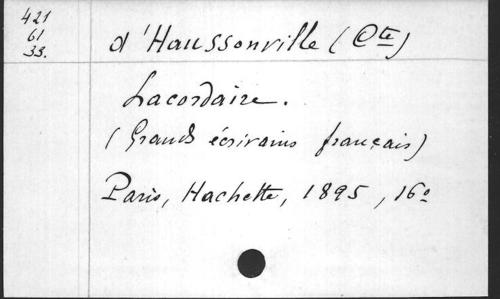 421
61
33.
d'Haussonville (Cte)
Lacordaire.
(Grands écrivains français)
Paris, Hachette, 1895, 16º